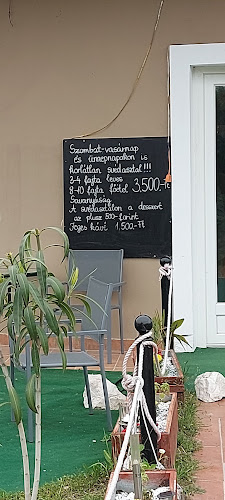 Szombat-vasárnap
és ünnepnapokon is
korlátlan svédasztal!!!
3-4 fajta leves
8-10 fajta főétel 3.500-Ft
Savanyúság
A svédasztalon a desszert
az plusz 500-forint
Jeges kávé 1.500-Ft